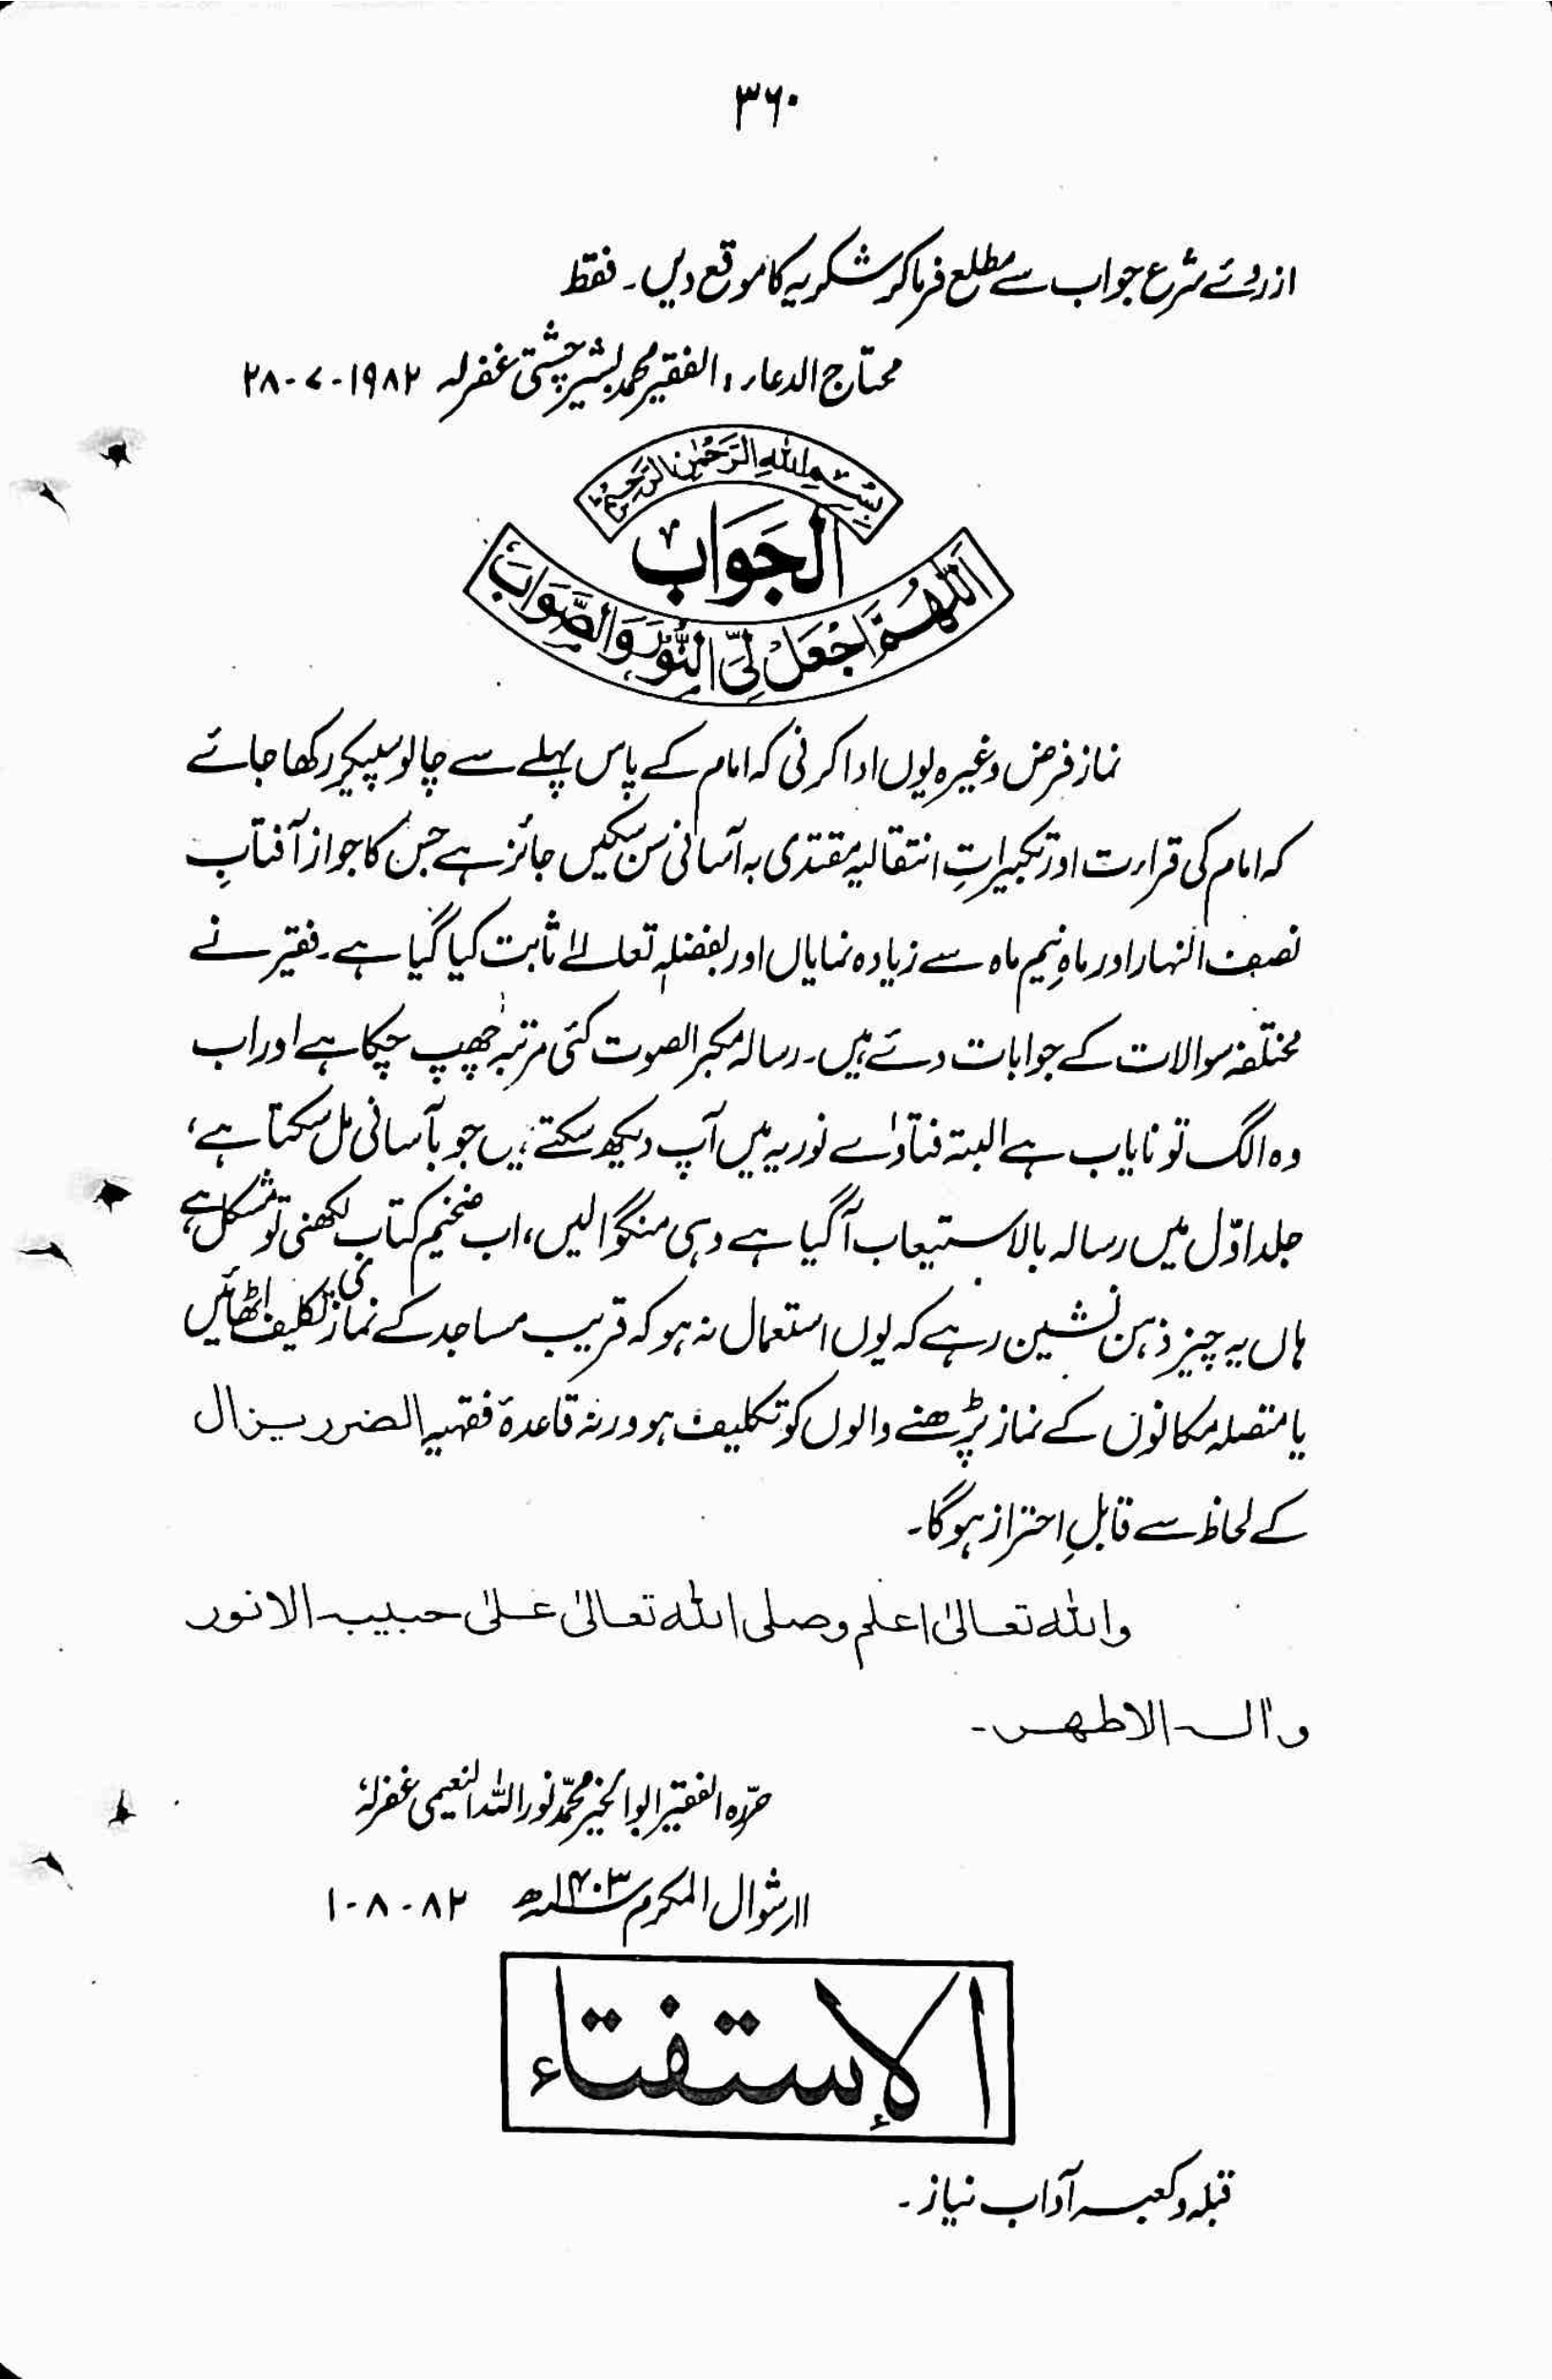 ۳۶۰
ازروئے شرع جواب سے مطلع فرماکر شکریہ کا موقع دیں۔ فقط
محتاج الدعاء ، الفقیر محمد بشیر چشتی غفرلہ ۱۹۸۲-۷-۲۸
بِسْمِ اللهِ الرَّحْمٰنِ الرَّحِيْمِ
الجَوَابُ
اَللّٰهُمَّ اجْعَلْ لِّيَ النُّوْرَ وَالصَّوَابَ
نماز فرض وغیرہ یوں ادا کرنی کہ امام کے پاس پہلے سے چالو سپیکر رکھا جائے
کہ امام کی قراءت اور تکبیراتِ انتقالیہ مقتدی بہ آسانی سن سکیں جائز ہے جس کا جواز آفتابِ
نصف النہار اور ماہِ نیم ماہ سے زیادہ نمایاں اور بفضلہٖ تعالےٰ ثابت کیا گیا ہے۔ فقیر نے
مختلف سوالات کے جوابات دئے ہیں۔ رسالہ مکبر الصوت کئی مرتبہ چھپ چکا ہے اور اب
وہ الگ تو نایاب ہے البتہ فتاوٰے نوریہ میں آپ دیکھ سکتے ہیں جو بآسانی مل سکتا ہے،
جلد اوّل میں رسالہ بالاستیعاب آگیا ہے وہی منگوالیں، اب ضخیم کتاب لکھنی تو مشکل ہے،
ہاں یہ چیز ذہن نشین رہے کہ یوں استعمال نہ ہو کہ قریب مساجد کے نمازی تکلیف اٹھائیں
یا متصلہ مکانوں کے نماز پڑھنے والوں کو تکلیف ہو ورنہ قاعدۂ فقہیہ الضرر یزال
کے لحاظ سے قابلِ احتراز ہوگا۔
واللہ تعالیٰ اعلم وصلی اللہ تعالیٰ علیٰ حبیبہ الانور
واٰلہ الاطہر۔
حرّرہ الفقیر ابوالخیر محمّد نور اللہ النعیمی غفرلہٗ
۱۱ر شوال المکرم ۱۴۰۳ھ ۸۲-۸-۱
الإستفتاء
قبلہ وکعبہ آداب نیاز۔